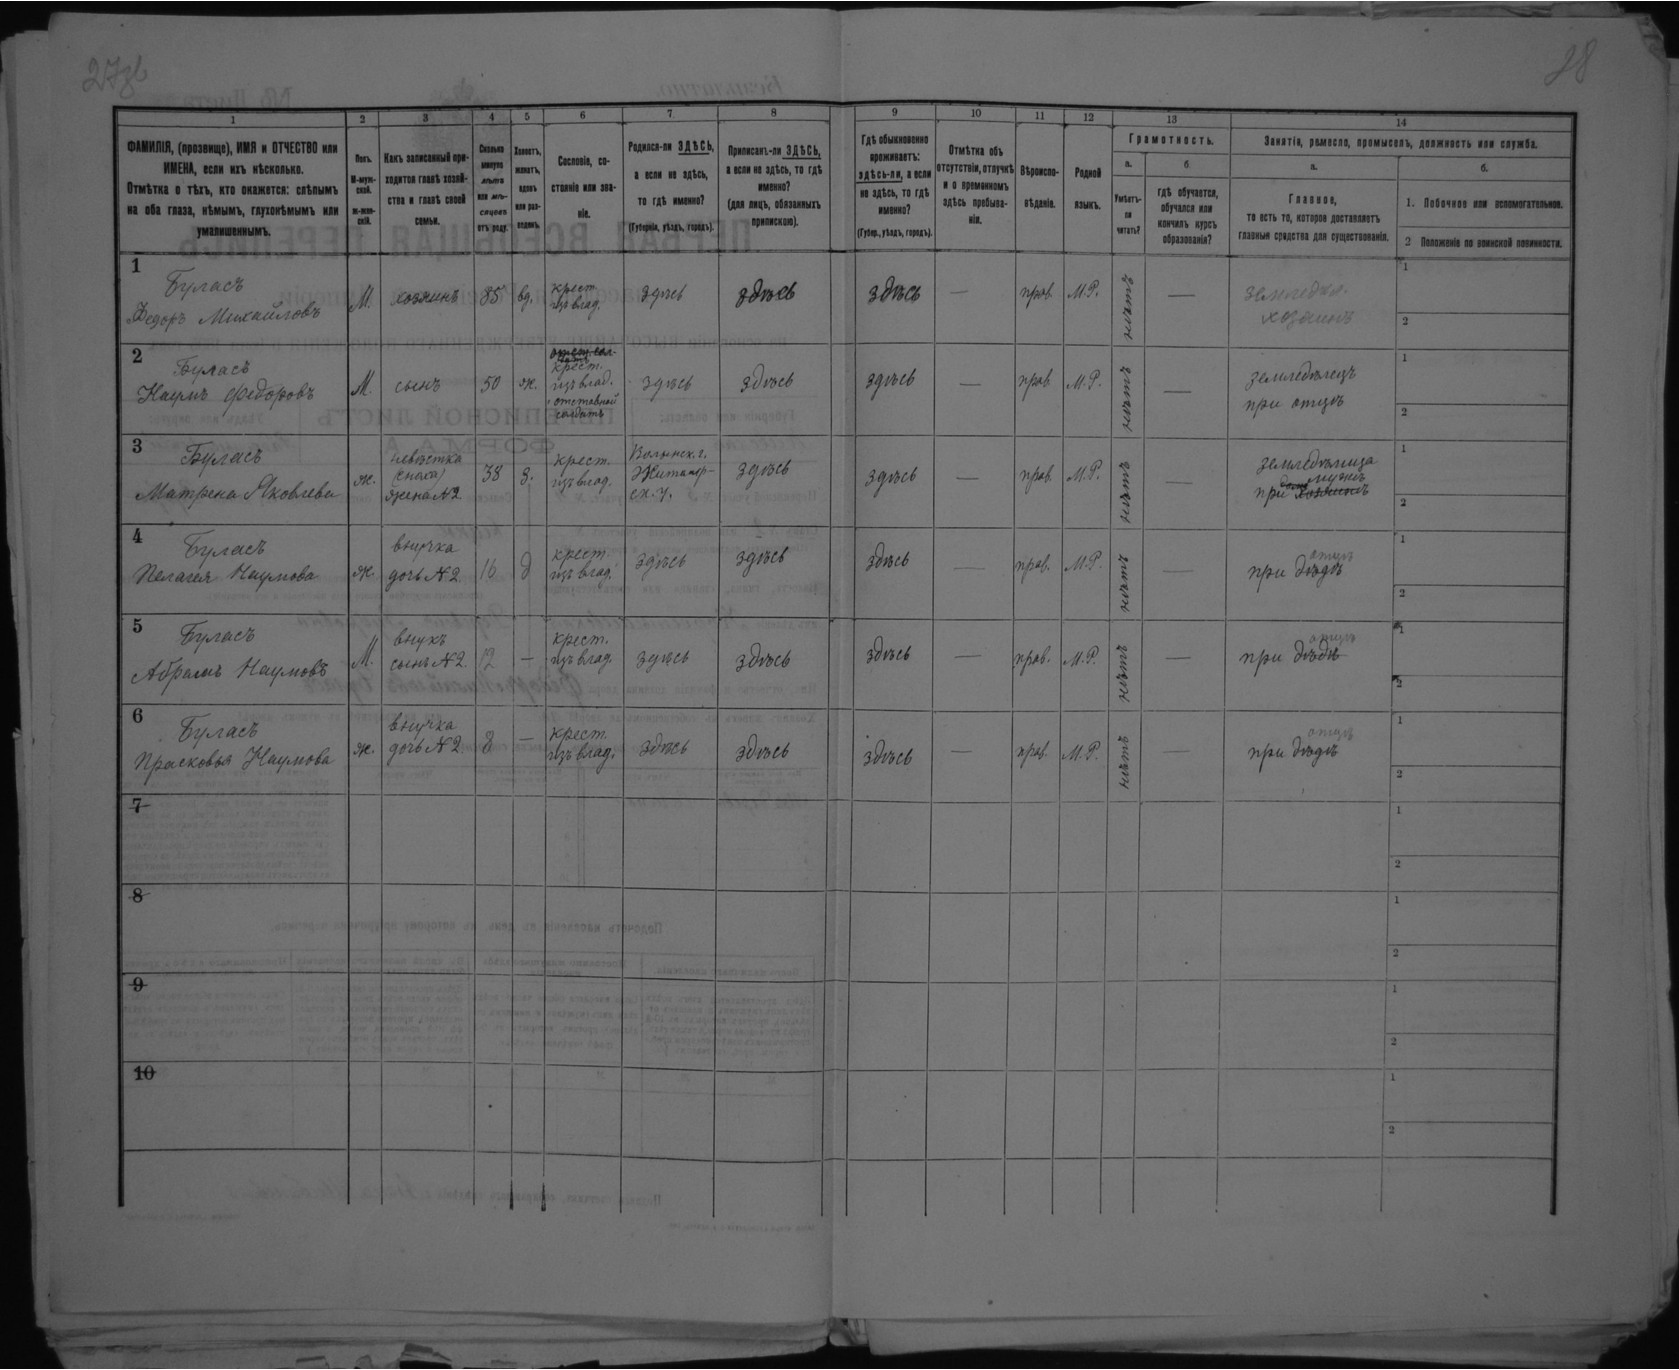 27об
88
1
2
3
4
5
6
7
8
9
10
11
12
13
14
ФАМИЛІЯ, (прозвище), ИМЯ и ОТЧЕСТВО или
ИМЕНА, если ихъ нѣсколько.
Отмѣтка о тѣхъ, кто окажется: слѣпымъ
на оба глаза, нѣмымъ, глухонѣмымъ или
умалишеннымъ.
Полъ.
М-муж-
ской.
ж-жен-
скій.
Какъ записанный при-
ходится главѣ хозяй-
ства и главѣ своей
семьи.
Сколько
минуло
лѣтъ
или мѣ-
сяцевъ
отъ роду.
Холостъ,
женатъ,
вдовъ
или раз-
веденъ.
Сословіе, со-
стояніе или зва-
ніе.
Родился-ли ЗДѢСЬ,
а если не здѣсь,
то гдѣ именно?
(Губернія, уѣздъ, городъ).
Приписанъ-ли ЗДѢСЬ,
а если не здѣсь, то гдѣ
именно?
(для лицъ, обязанныхъ
припискою).
Гдѣ обыкновенно
проживаетъ:
здѣсь-ли, а если
не здѣсь, то гдѣ
именно?
(Губер., уѣздъ, городъ).
Отмѣтка объ
отсутствіи, отлучкѣ
и о временномъ
здѣсь пребыва-
ніи.
Вѣроиспо-
вѣданіе.
Родной
языкъ.
Грамотность.
а.
б.
Умѣетъ-
ли
читать?
гдѣ обучается,
обучался или
кончилъ курсъ
образованія?
Занятія, ремесло, промыселъ, должность или служба.
а.
б.
Главное,
то есть то, которое доставляетъ
главныя средства для существованія.
1. Побочное или вспомогательное.
2 Положеніе по воинской повинности.
1
Буласъ
Федоръ Михайловъ
М.
хозяинъ
85
вд.
крест.
изъ влад.
здѣсь
здѣсь
здѣсь
—
прав.
М.Р.
нѣтъ
—
земледѣл.
хозяинъ
1
2
2
Буласъ
Наумъ Федоровъ
М.
сынъ
50
ж.
крест.
изъ влад.
отставной
солдатъ
здѣсь
здѣсь
здѣсь
—
прав.
М.Р.
нѣтъ
—
земледѣлецъ
при отцѣ
1
2
3
Буласъ
Матрена Яковлева
ж.
невѣстка
(сноха)
жена №2
38
з.
крест.
изъ влад.
Волынск. г.
Житомір-
ск. у.
здѣсь
здѣсь
—
прав.
М.Р.
нѣтъ
—
земледѣлица
мужѣ
при хозяинѣ
1
2
4
Буласъ
Пелагея Наумова
ж.
внучка
дочь №2
16
д
крест.
изъ влад.
здѣсь
здѣсь
здѣсь
—
прав.
М.Р.
нѣтъ
—
отцѣ
при дѣдѣ
1
2
5
Буласъ
Абрамъ Наумовъ
М.
внукъ
сынъ №2
12
—
крест.
изъ влад.
здѣсь
здѣсь
здѣсь
—
прав.
М.Р.
нѣтъ
—
отцѣ
при дѣдѣ
1
2
6
Буласъ
Прасковья Наумова
ж.
внучка
дочь №2
8
—
крест.
изъ влад.
здѣсь
здѣсь
здѣсь
—
прав.
М.Р.
нѣтъ
—
отцѣ
при дѣдѣ
1
2
7
1
2
8
1
2
9
1
2
10
1
2